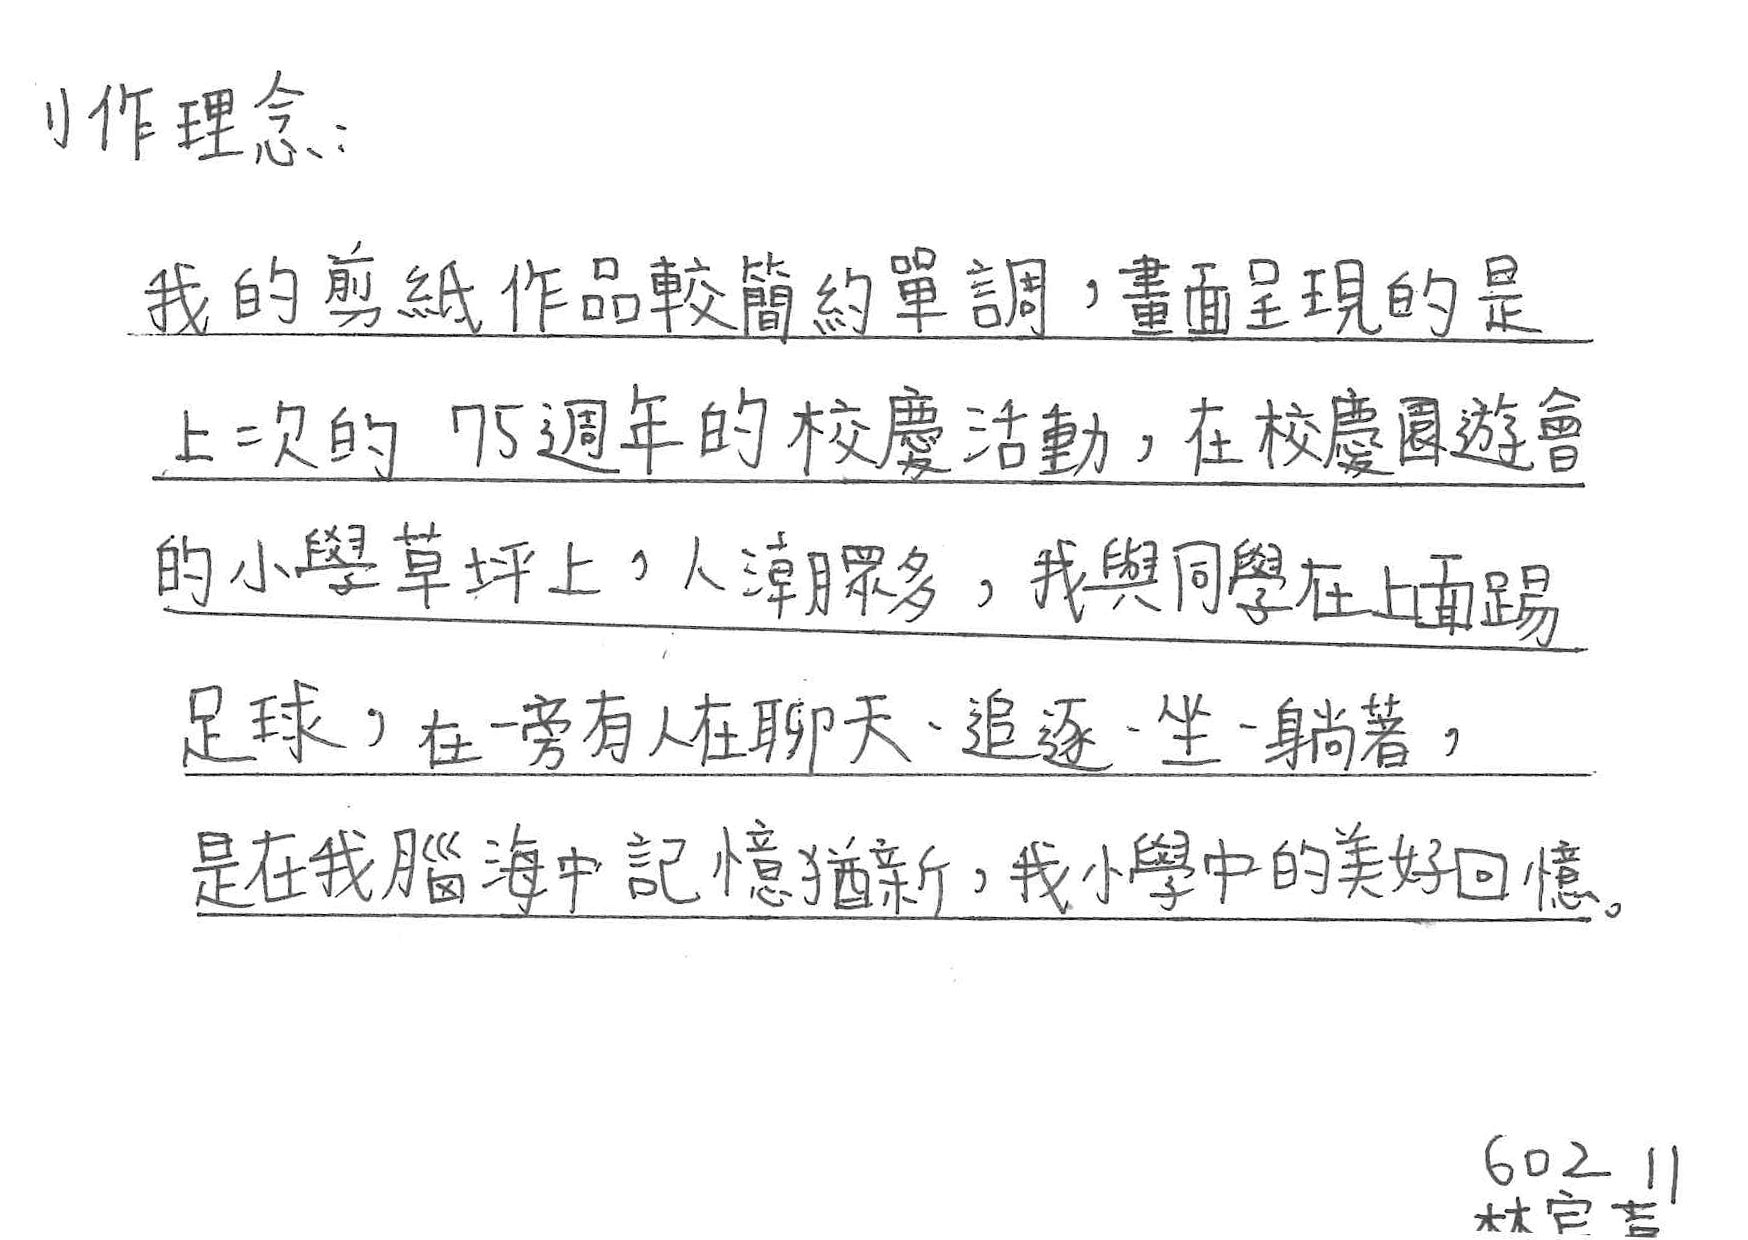 作理念:
我的剪紙作品較簡約單調，畫面呈現的是
上次的 75週年的校慶活動，在校慶園遊會
的小學草坪上，人潮眾多，我與同學在上面踢
足球，在一旁有人在聊天、追逐、坐、躺著，
是在我腦海中記憶猶新，我小學中的美好回憶。
602 11
林